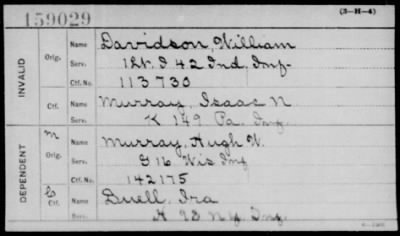 159029
(3-H-4)
INVALID
Orig. Name Davidson, William
Serv. 1 Lt. I 42 Ind. Inf.
Ctf. No. 113730
Ctf. Name Murray, Isaac N
Serv. K 149 Pa. Inf.
DEPENDENT
m Orig. Name Murray, Hugh W.
Serv. G 16 Wis Inf
Ctf. No. 142175
C Ctf. Name Duell, Ira
Serv. H 93 N.Y. Inf.